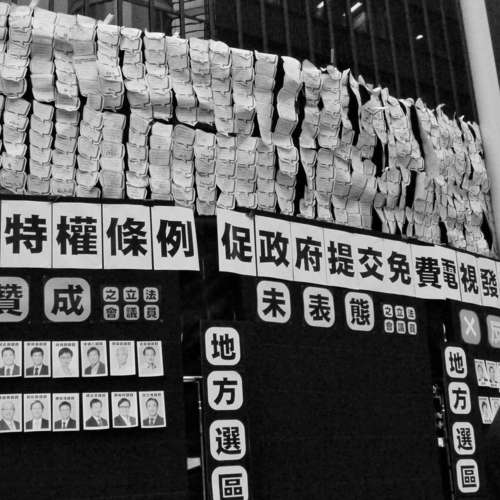 特權條例 促政府提交免費電視發
贊成 之立法會議員
未表態 之立法會議員
地方選區
地方選區